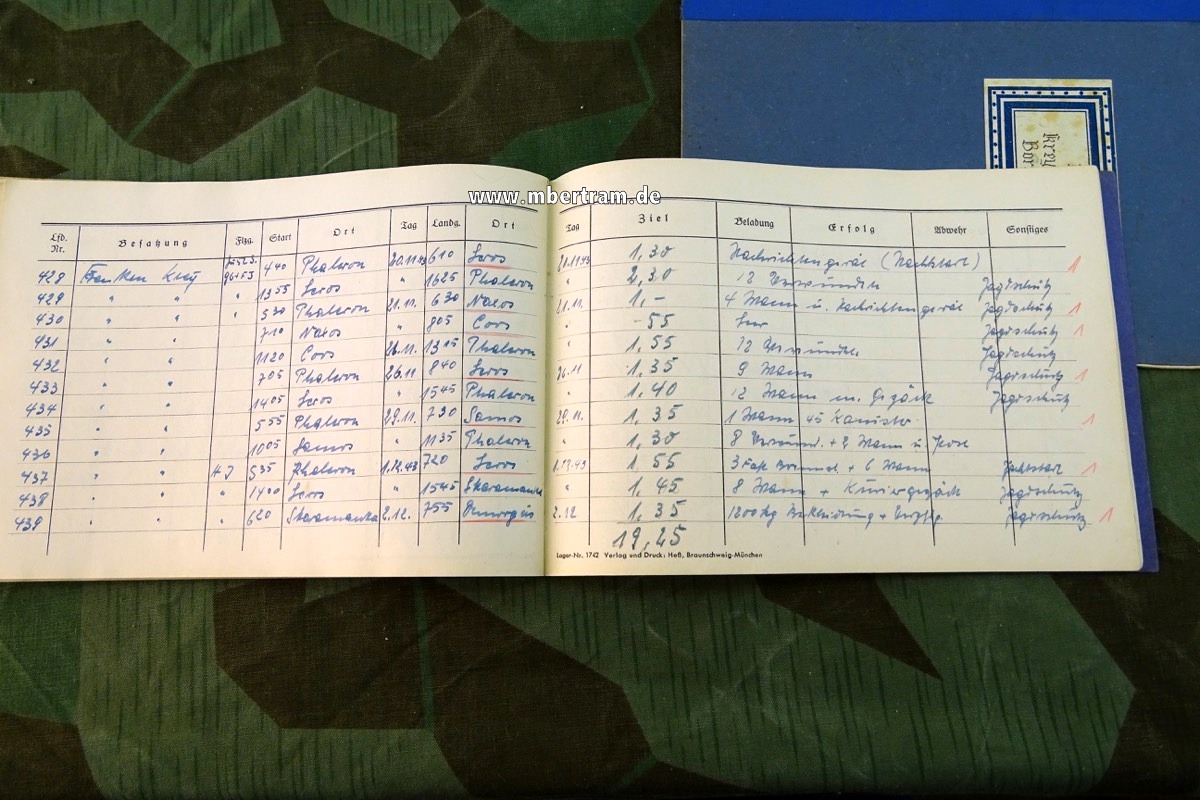 www.mbertram.de
Lfd. Nr. Besatzung Flzg. Start Ort Tag Landg. Ort Tag Ziel Beladung Erfolg Abwehr Sonstiges
428 440 Phaleron 20.11.43 610 Leros 1,30 Nachrichtengerät (Nachtstart) 1
429 " " " 1355 Leros " 1625 Phaleron " 2,30 12 Verwundete Jagdschutz
430 " " " 530 Phaleron 21.11. 630 Naxos 21.11. 1,- 4 Mann u. Nachrichtengerät Jagdschutz 1
431 " " 710 Naxos " 805 Coos " -55 leer Jagdschutz 1
432 " " 1120 Coos 1315 Phaleron " 1,55 12 Verwundete Jagdschutz
433 " " 705 Phaleron 26.11 840 Leros 26.11 1,35 9 Mann Jagdschutz 1
434 " " 1405 Leros " 1545 Phaleron " 1,40 12 Mann m. Gepäck Jagdschutz
435 " " 555 Phaleron 29.11. 730 Samos 29.11. 1,35 1 Mann 45 Kanister 1
436 " " 1005 Samos " 1135 Phaleron " 1,30 8 Verwund. + 2 Mann u.
437 " " HJ 535 Phaleron 1.12.43 720 Leros 1.12.43 1,55 + 6 Mann 1
438 " " " 1400 Leros " 1545 Skaramanka " 1,45 8 Mann + Kuriergepäck Jagdschutz
439 " " " 620 Skaramanka 2.12. 755 2.12 1,35 1200kg Bekleidung + Jagdschutz 1
19,25
Lager-Nr. 1742 Verlag und Druck: Heß, Braunschweig-München